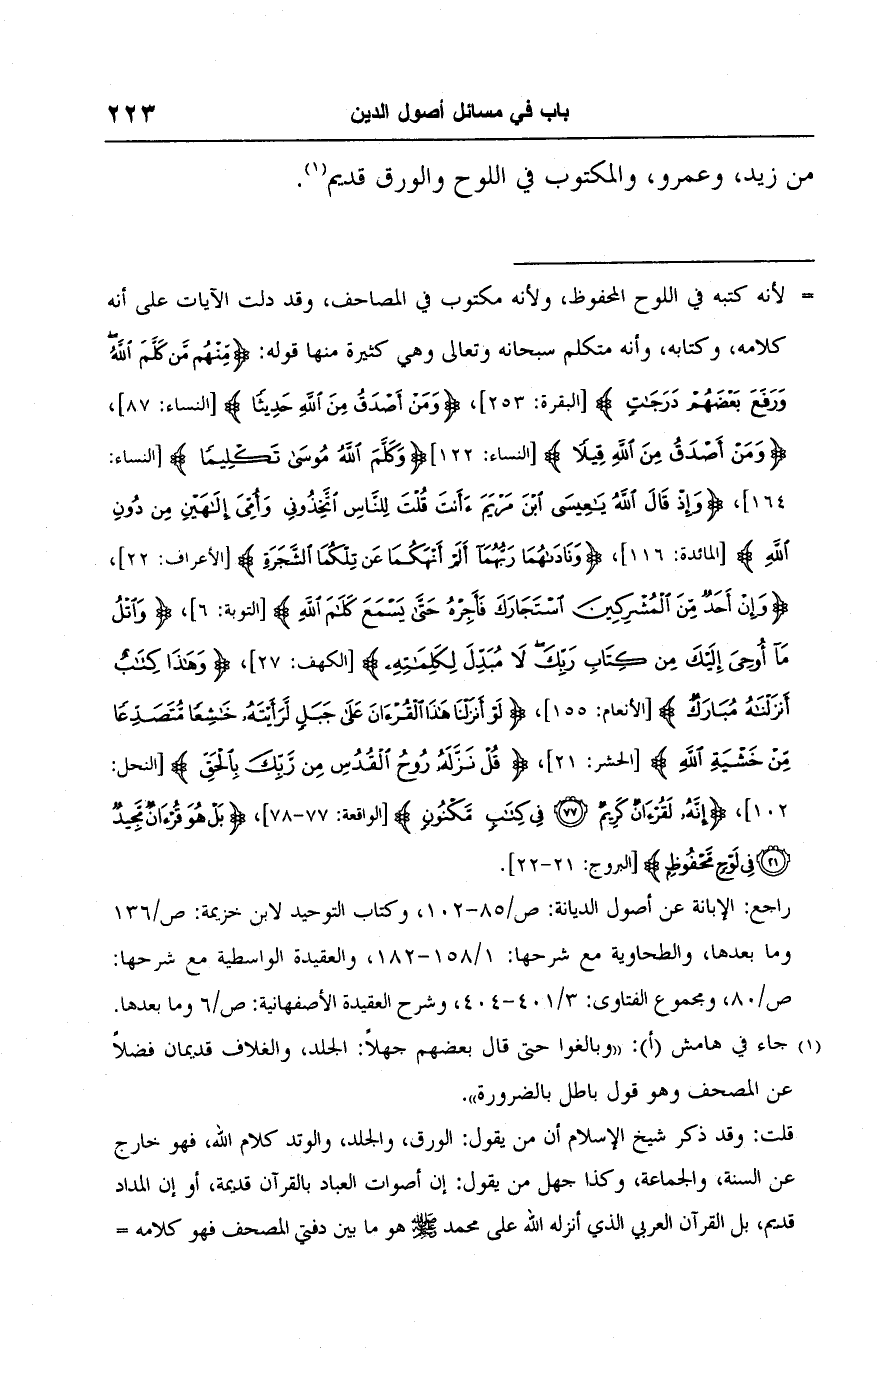 باب في مسائل أصول الدين ٢٢٣
من زيد، وعمرو، والمكتوب في اللوح والورق قديم(١).
= لأنه كتبه في اللوح المحفوظ، ولأنه مكتوب في المصاحف، وقد دلت الآيات على أنه
كلامه، وكتابه، وأنه متكلم سبحانه وتعالى وهي كثيرة منها قوله: ﴿مِّنْهُم مَّن كَلَّمَ ٱللَّهُۖ
وَرَفَعَ بَعْضَهُمْ دَرَجَٰتٍ﴾ [البقرة: ٢٥٣]، ﴿وَمَنْ أَصْدَقُ مِنَ ٱللَّهِ حَدِيثًا﴾ [النساء: ٨٧]،
﴿وَمَنْ أَصْدَقُ مِنَ ٱللَّهِ قِيلًا﴾ [النساء: ١٢٢] ﴿وَكَلَّمَ ٱللَّهُ مُوسَىٰ تَكْلِيمًا﴾ [النساء:
١٦٤]، ﴿وَإِذْ قَالَ ٱللَّهُ يَٰعِيسَى ٱبْنَ مَرْيَمَ ءَأَنتَ قُلْتَ لِلنَّاسِ ٱتَّخِذُونِى وَأُمِّىَ إِلَٰهَيْنِ مِن دُونِ
ٱللَّهِ﴾ [المائدة: ١١٦]، ﴿وَنَادَىٰهُمَا رَبُّهُمَآ أَلَمْ أَنْهَكُمَا عَن تِلْكُمَا ٱلشَّجَرَةِ﴾ [الأعراف: ٢٢]،
﴿وَإِنْ أَحَدٌ مِّنَ ٱلْمُشْرِكِينَ ٱسْتَجَارَكَ فَأَجِرْهُ حَتَّىٰ يَسْمَعَ كَلَٰمَ ٱللَّهِ﴾ [التوبة: ٦]، ﴿وَٱتْلُ
مَآ أُوحِىَ إِلَيْكَ مِن كِتَابِ رَبِّكَۖ لَا مُبَدِّلَ لِكَلِمَٰتِهِۦ﴾ [الكهف: ٢٧]، ﴿وَهَٰذَا كِتَٰبٌ
أَنزَلْنَٰهُ مُبَارَكٌ﴾ [الأنعام: ١٥٥]، ﴿لَوْ أَنزَلْنَا هَٰذَا ٱلْقُرْءَانَ عَلَىٰ جَبَلٍ لَّرَأَيْتَهُۥ خَٰشِعًا مُّتَصَدِّعًا
مِّنْ خَشْيَةِ ٱللَّهِ﴾ [الحشر: ٢١]، ﴿قُلْ نَزَّلَهُۥ رُوحُ ٱلْقُدُسِ مِن رَّبِّكَ بِٱلْحَقِّ﴾ [النحل:
١٠٢]، ﴿إِنَّهُۥ لَقُرْءَانٌ كَرِيمٌ ۝٧٧ فِى كِتَٰبٍ مَّكْنُونٍ﴾ [الواقعة: ٧٧-٧٨]، ﴿بَلْ هُوَ قُرْءَانٌ مَّجِيدٌ
۝٢١ فِى لَوْحٍ مَّحْفُوظٍ﴾ [البروج: ٢١-٢٢].
راجع: الإبانة عن أصول الديانة: ص/٨٥-١٠٢، وكتاب التوحيد لابن خزيمة: ص/١٣٦
وما بعدها، والطحاوية مع شرحها: ١/١٥٨-١٨٢، والعقيدة الواسطية مع شرحها:
ص/٨٠، ومجموع الفتاوى: ٣/٤٠١-٤٠٤، وشرح العقيدة الأصفهانية: ص/٦ وما بعدها.
(١) جاء في هامش (أ): «وبالغوا حتى قال بعضهم جهلاً: الجلد، والغلاف قديمان فضلاً
عن المصحف وهو قول باطل بالضرورة».
قلت: وقد ذكر شيخ الإسلام أن من يقول: الورق، والجلد، والوتد كلام الله، فهو خارج
عن السنة، والجماعة، وكذا جهل من يقول: إن أصوات العباد بالقرآن قديمة، أو إن المداد
قديم، بل القرآن العربي الذي أنزله الله على محمد ﷺ هو ما بين دفتي المصحف فهو كلامه =